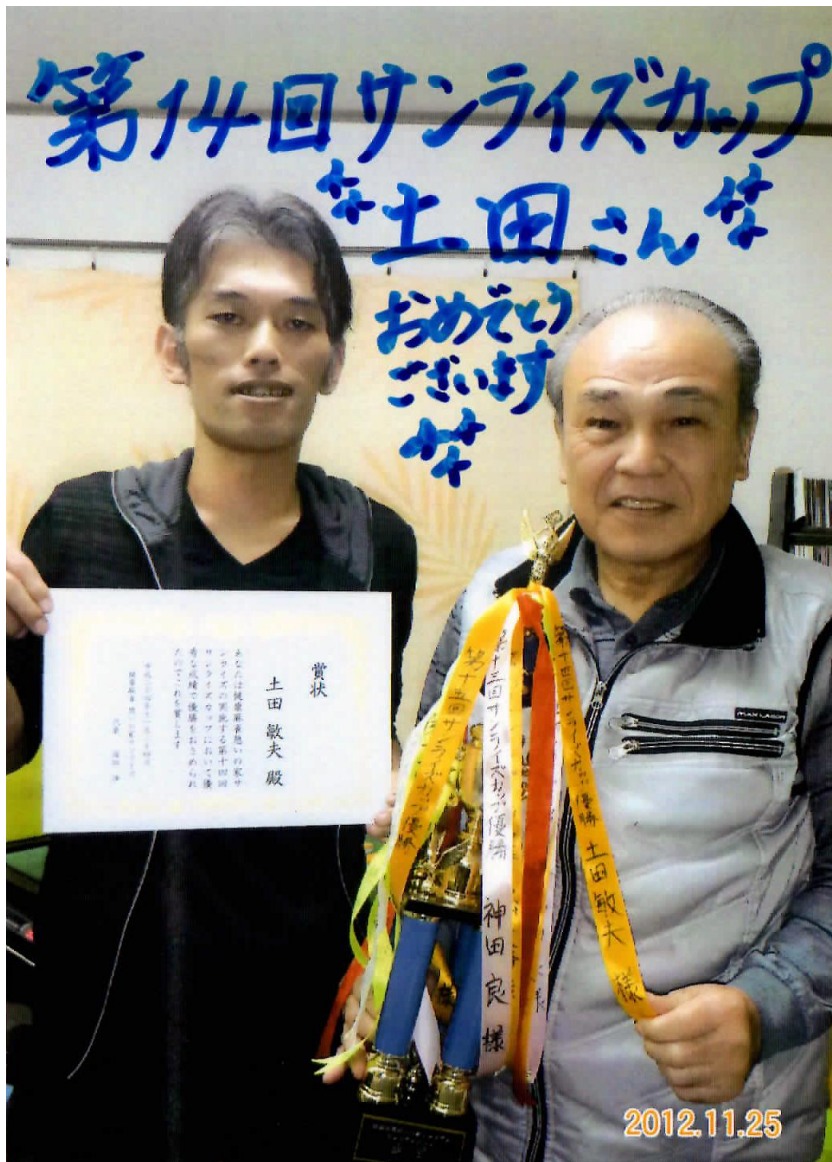 第14回サンライズカップ
土田さん
おめでとう
ございます
賞状
土田 敏夫 殿
あなたは健康麻雀憩いの家サ
ンライズの実施する第十四回
サンライズカップにおいて優
秀な成績で優勝をおさめられ
たのでこれを賞します
代表
第十五回サンライズカップ優勝
第十三回サンライズカップ優勝 神田 良 様
第十四回サンライズカップ優勝 土田 敏夫 様
2012.11.25